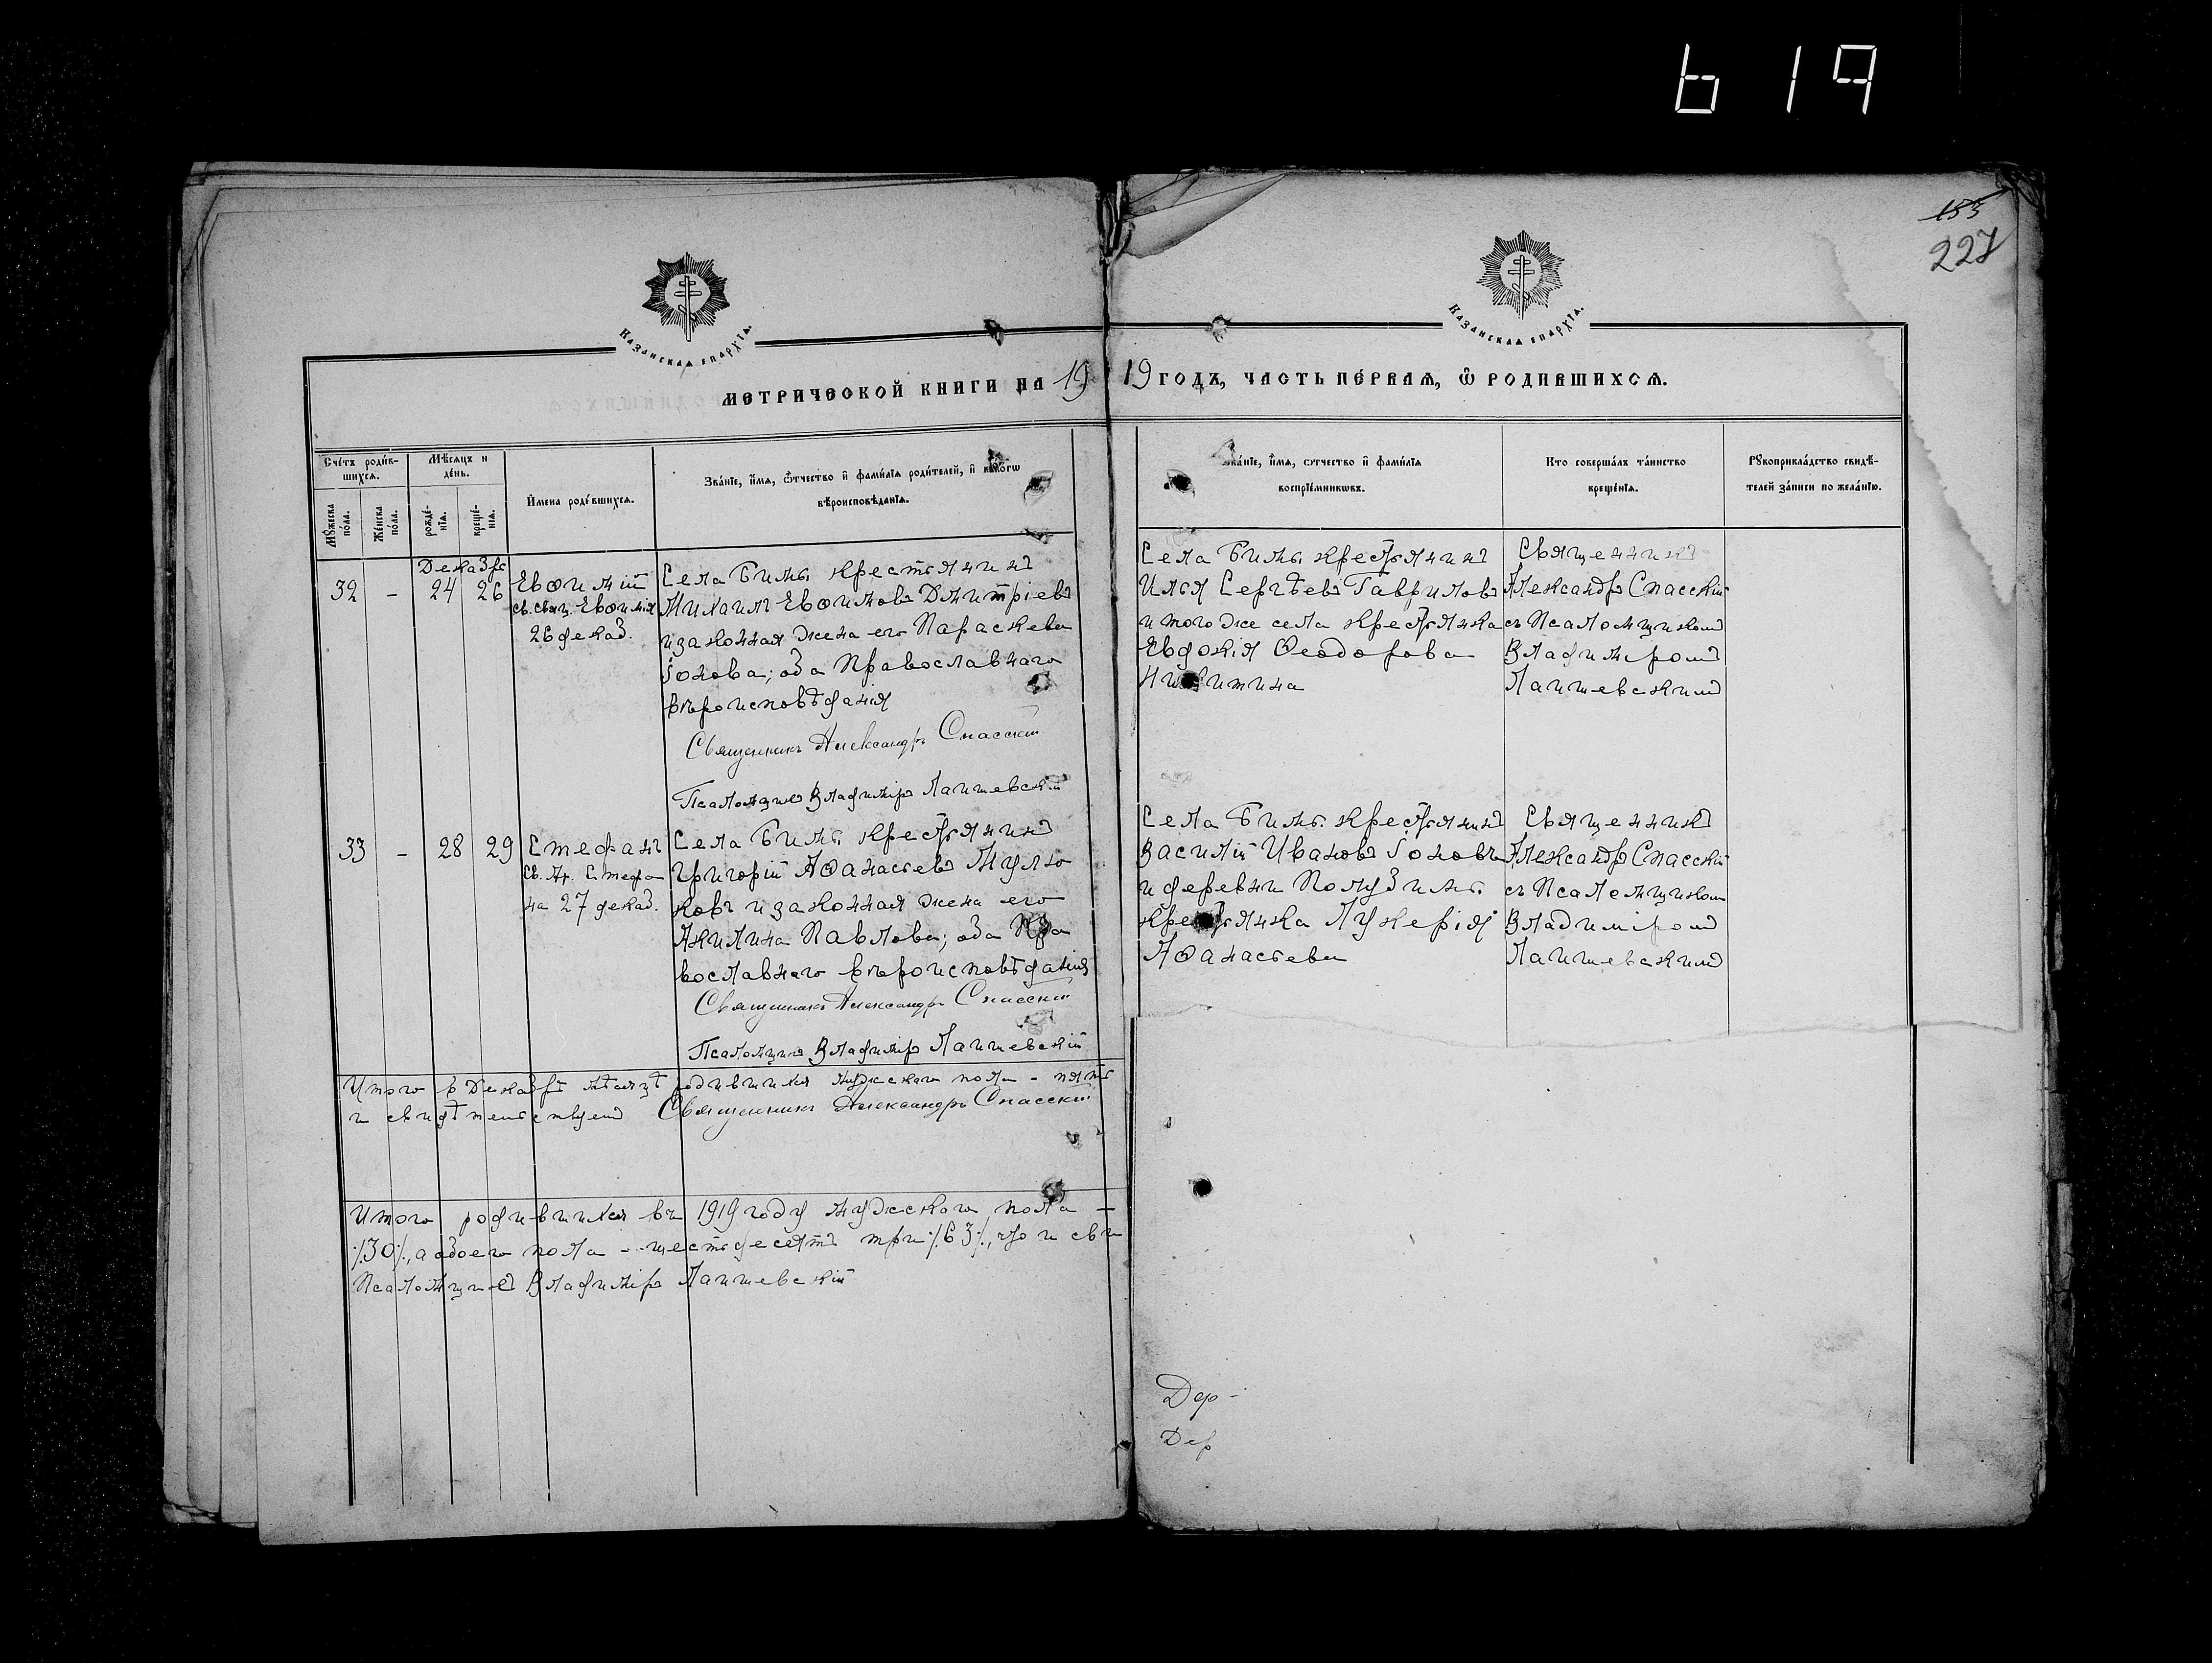 619
153
227
Казанская епархїа.
Казанская епархїа.
Метрической книги на 1919 годъ, часть первая, ѿ родившихся.
Счетъ родив-
шихся.
Мужеска
пола.
Женска
пола.
Мѣсяцъ и
день.
рожде-
нїя.
креще-
нїя.
Имена родившихся.
Званїе, имя, ѿчество и фамилїя родителей, и какогѡ
вѣроисповѣданїя.
Званїе, имя, ѿчество и фамилїя
воспрїемникωвъ.
Кто совершалъ таинство
крещенїя.
Рукоприкладство свидѣ-
телей записи по желанїю.
Декабрь
32 - 24 26
Евѳимій
св. свящ. Евѳимія
26 декаб.
Села Бимъ крестьянинъ
Михаилъ Евѳимовъ Дмитріевъ
и законная жена его Параскева
Іонова; оба Православнаго
вѣроисповѣданія
Священникъ Александръ Спасскій
Псаломщикъ Владиміръ Лаишевскій
Села Бимъ крестьянинъ
Илья Сергѣевъ Гавриловъ
и того же села крестьянка
Евдокія Ѳеодорова
Никитина
Священникъ
Александръ Спасскій
съ Псаломщикомъ
Владиміромъ
Лаишевскимъ
33 - 28 29
Стефанъ
Св. Ар. Стефа
на 27 декаб.
Села Бимъ крестьянинъ
Григорій Аѳанасьевъ Мулю
ковъ и законная жена его
Акилина Павлова; оба Пра
вославнаго вѣроисповѣданія
Священникъ Александръ Спасскій
Псаломщикъ Владиміръ Лаишевскій
Села Бимъ крестьянинъ
Василій Ивановъ Іоновъ
и деревни Полубимъ
крестьянка Лукерія
Аѳанасьева
Священникъ
Александръ Спасскій
съ Псаломщикомъ
Владиміромъ
Лаишевскимъ
Итого въ Декабрѣ мѣсяцѣ родившихся мужскаго пола - пять
и свидѣтельствуемъ Священникъ Александръ Спасскій
Итого родившихся въ 1919 году мужскаго пола -
/30/, а обоего пола - шестьдесятъ три /63/, что и сви
Псаломщикъ Владиміръ Лаишевскій
Дер -
Дер